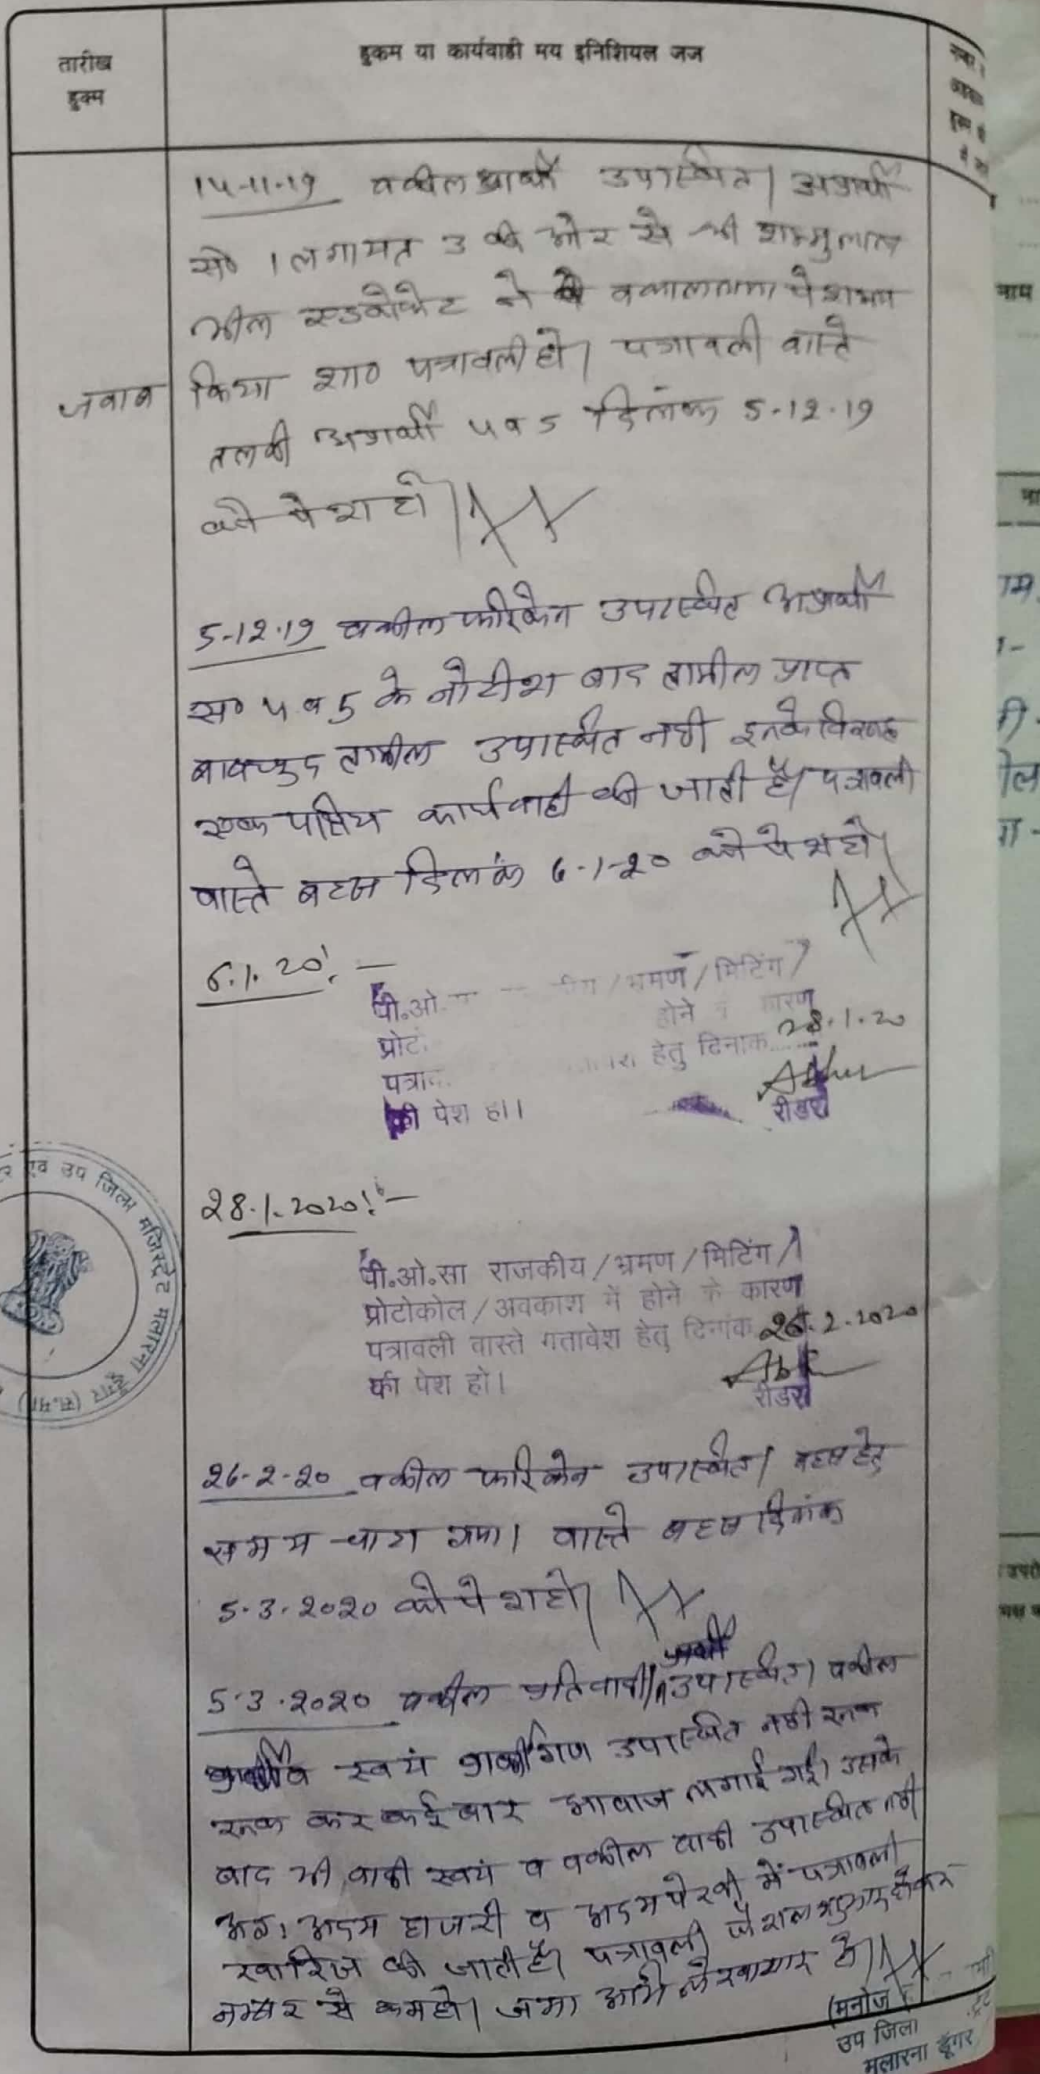 तारीख
हुक्म
हुकम या कार्यवाही मय इनिशियल जज
14-11-19 वकील प्रार्थी उपस्थित। अप्रार्थी
सं० 1 लगायत 3 की ओर से श्री शम्भुलाल
मील एडवोकेट ने वकालतनामा पेश
जवाब
किया शा० पत्रावली हो। पत्रावली वास्ते
तलबी अप्रार्थी 4 व 5 दिनांक 5-12-19
को पेश हो।
5-12-19 वकील फरिकेन उपस्थित अप्रार्थी
स० 4 व 5 के नोटीश बाद तामील प्राप्त
बावजुद तामील उपस्थित नही इनके विरूद्ध
एक पक्षिय कार्यवाही की जाती है। पत्रावली
वास्ते बहस दिनांक 6-1-20 को पेश हो।
6.1.20:-
पी.ओ. /भ्रमण/मिटिंग/
प्रोट होने के कारण
पत्रा हेतु दिनांक 28.1.20
की पेश हो।
रीडर
28.1.2020:-
पी.ओ.सा राजकीय/भ्रमण/मिटिंग/
प्रोटोकोल/अवकाश में होने के कारण
पत्रावली वास्ते गतावेश हेतु दिनांक 26.2.2020
की पेश हो।
रीडर
एवं उप जिला मजिस्ट्रेट मलारना डूंगर (स.मा.)
26-2-20 वकील फरिकेन उपस्थित। बहस हेतु
समय चाहा गया। वास्ते बहस दिनांक
5-3-2020 को पेश हो।
5-3-2020 वकील प्रतिवादी उपस्थित। वकील
प्रार्थी व स्वयं प्रार्थीगण उपस्थित नही रूक
रूक कर कई बार आवाज लगाई गई। उसके
बाद भी वादी स्वयं व वकील वादी उपस्थित नही
अतः अदम हाजरी व अदम पेरवी में पत्रावली
खारिज की जाती है। पत्रावली फैशल शुमार होकर
नम्बर से कम हो। जमा अभिलेखागार हो।
(मनोज
उप जिला
मलारना डूंगर
नाम